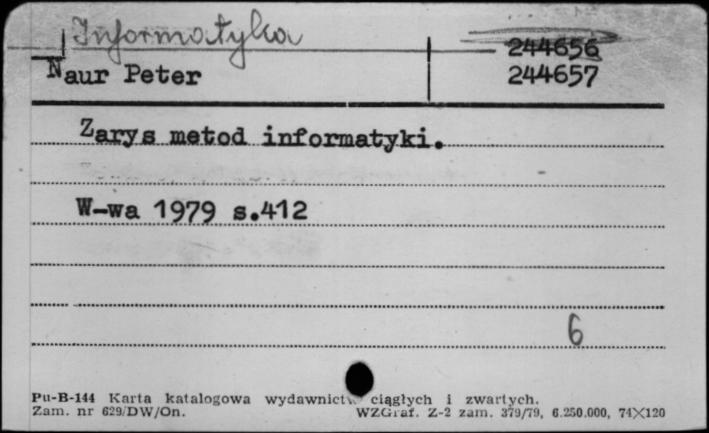 Informatyka
244656
Naur Peter 244657
Zarys metod informatyki.
W-wa 1979 s.412
6
Pu-B-144 Karta katalogowa wydawnictw ciągłych i zwartych.
Zam. nr 629/DW/On. WZGraf. Z-2 zam. 379/79, 6.250.000, 74×120